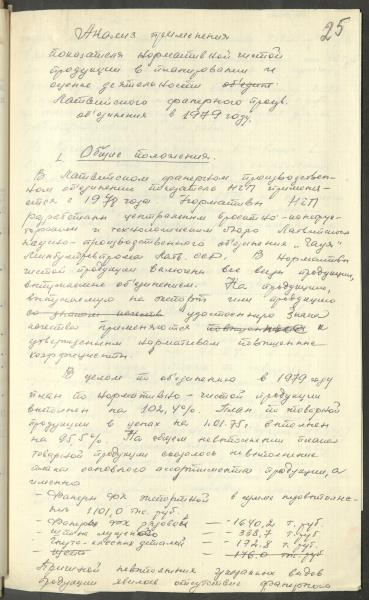 25
Анализ применения
показателя нормативной чистой
продукции в планировании и
оценке деятельности объедин
Латвийского фанерного произв.
объединения в 1979 году.
1 Общие положения.
В Латвийском фанерном производствен-
ном объединении показатель НЧП применя-
ется с 1978 года Нормативы НЧП
разработаны центральным проектно-констру-
кторским и технологическим бюро Латвийского
научно-производственного объединения "Гауя"
Минлеспрома Латв. ССР. В нормативы
чистой продукции включены все виды продукции,
выпускаемые объединением. На продукцию,
выпускаемую на экспорт или продукцию
со знаком качества удостоенную Знака
качества применяются к
утвержденным нормативам повышенные
коэффициенты.
В целом по объединению в 1979 году
план по нормативно-чистой продукции
выполнен на 102,4%. План по товарной
продукции в ценах на 1.01.75г. выполнен
на 95,5%. На общем невыполнении плана
товарной продукции сказалось невыполнение
плана основного ассортимента продукции, а
именно
- Фанеры ФК экспортной в сумме недовыполне-
ния 1101,0 тыс. руб.
- Фанеры ФК рядовой — -1640,2 т. руб.
- шпона лущеного — -333,7 т. руб
- гнуто-клееных деталей — -192,8 т. руб
- — -176,0 тыс руб
Причиной невыполнения указанных видов
продукции явилось отсутствие фанерного